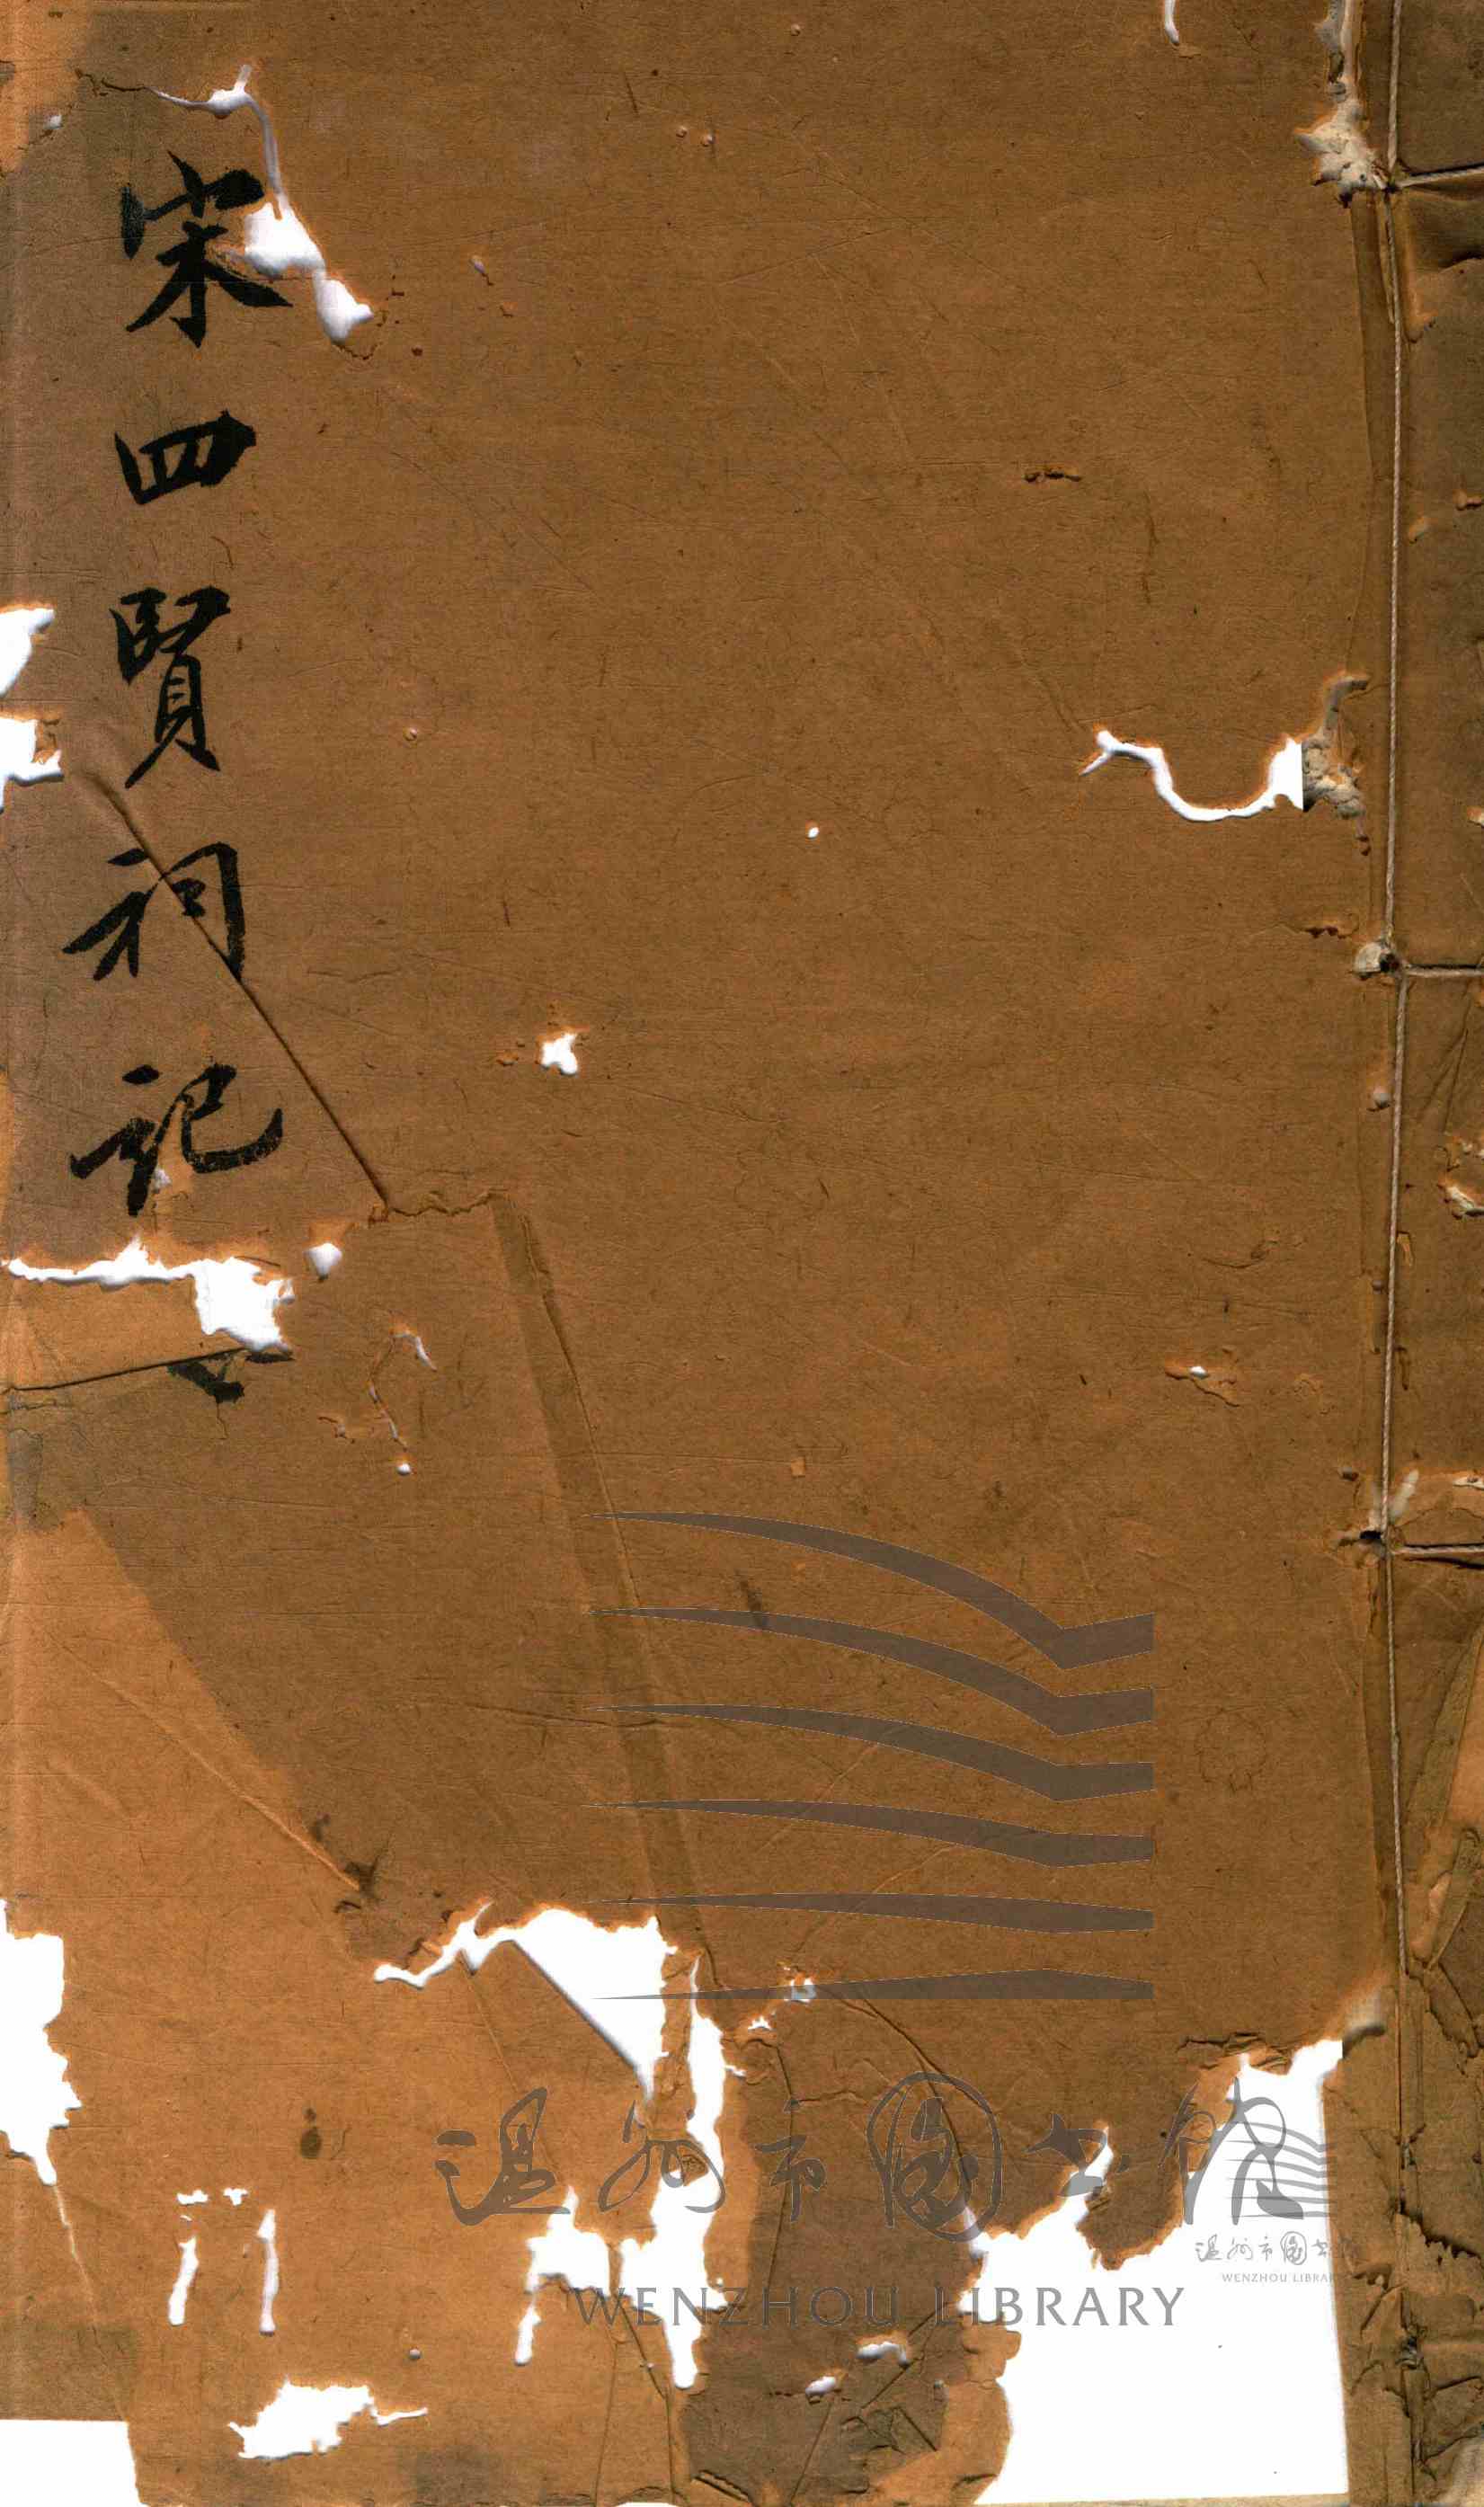 宋四賢祠記
温州市圖书館
WENZHOU LIBRARY
温州市圖书
WENZHOU LIBRAR